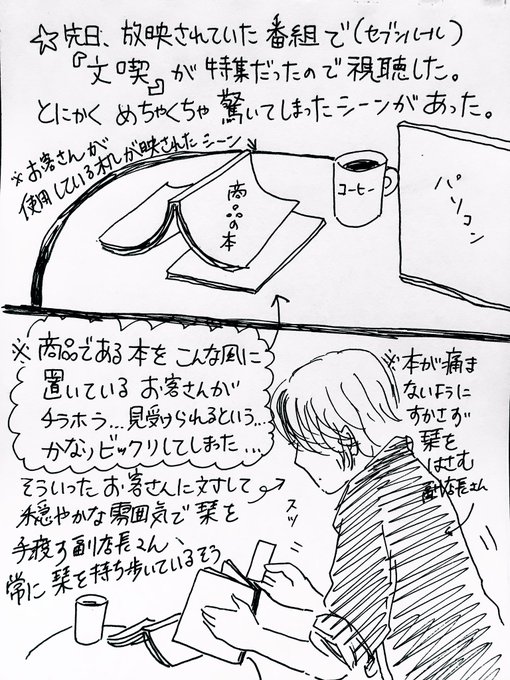 ☆先日、放映されていた番組で(セブンルール)
『文喫』が特集だったので視聴した。
とにかくめちゃくちゃ驚いてしまったシーンがあった。
※お客さんが
使用している机が映されたシーン
商品の本
コーヒー
パソコン
※商品である本をこんな風に
置いているお客さんが
チラホラ…見受けられるという…
かなりビックリしてしまった…
そういったお客さんに対して
穏やかな雰囲気で栞を
手渡す副店長さん、
常に栞を持ち歩いているそう
※本が痛ま
ないように
すかさず
栞を
はさむ
副店長さん
スッ